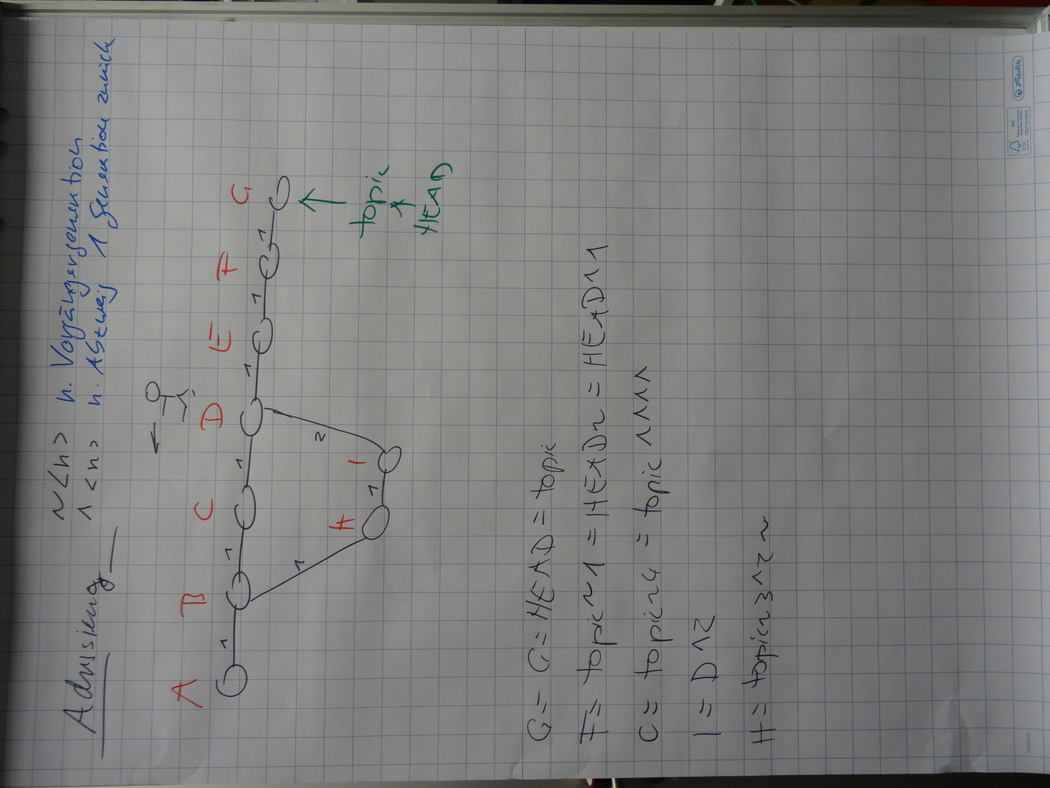 ~<n> n. Vorgängergeneration
Adressierung ^<n> n. Abzweig 1 Generation zurück
A B C D E F G
1 1 1 1 1 1
1 2
H I
1
topic
HEAD
G = G = HEAD = topic
F = topic~1 = HEAD~ = HEAD^1
C = topic~4 = topic^^^^
I = D^2
H = topic~3^2~